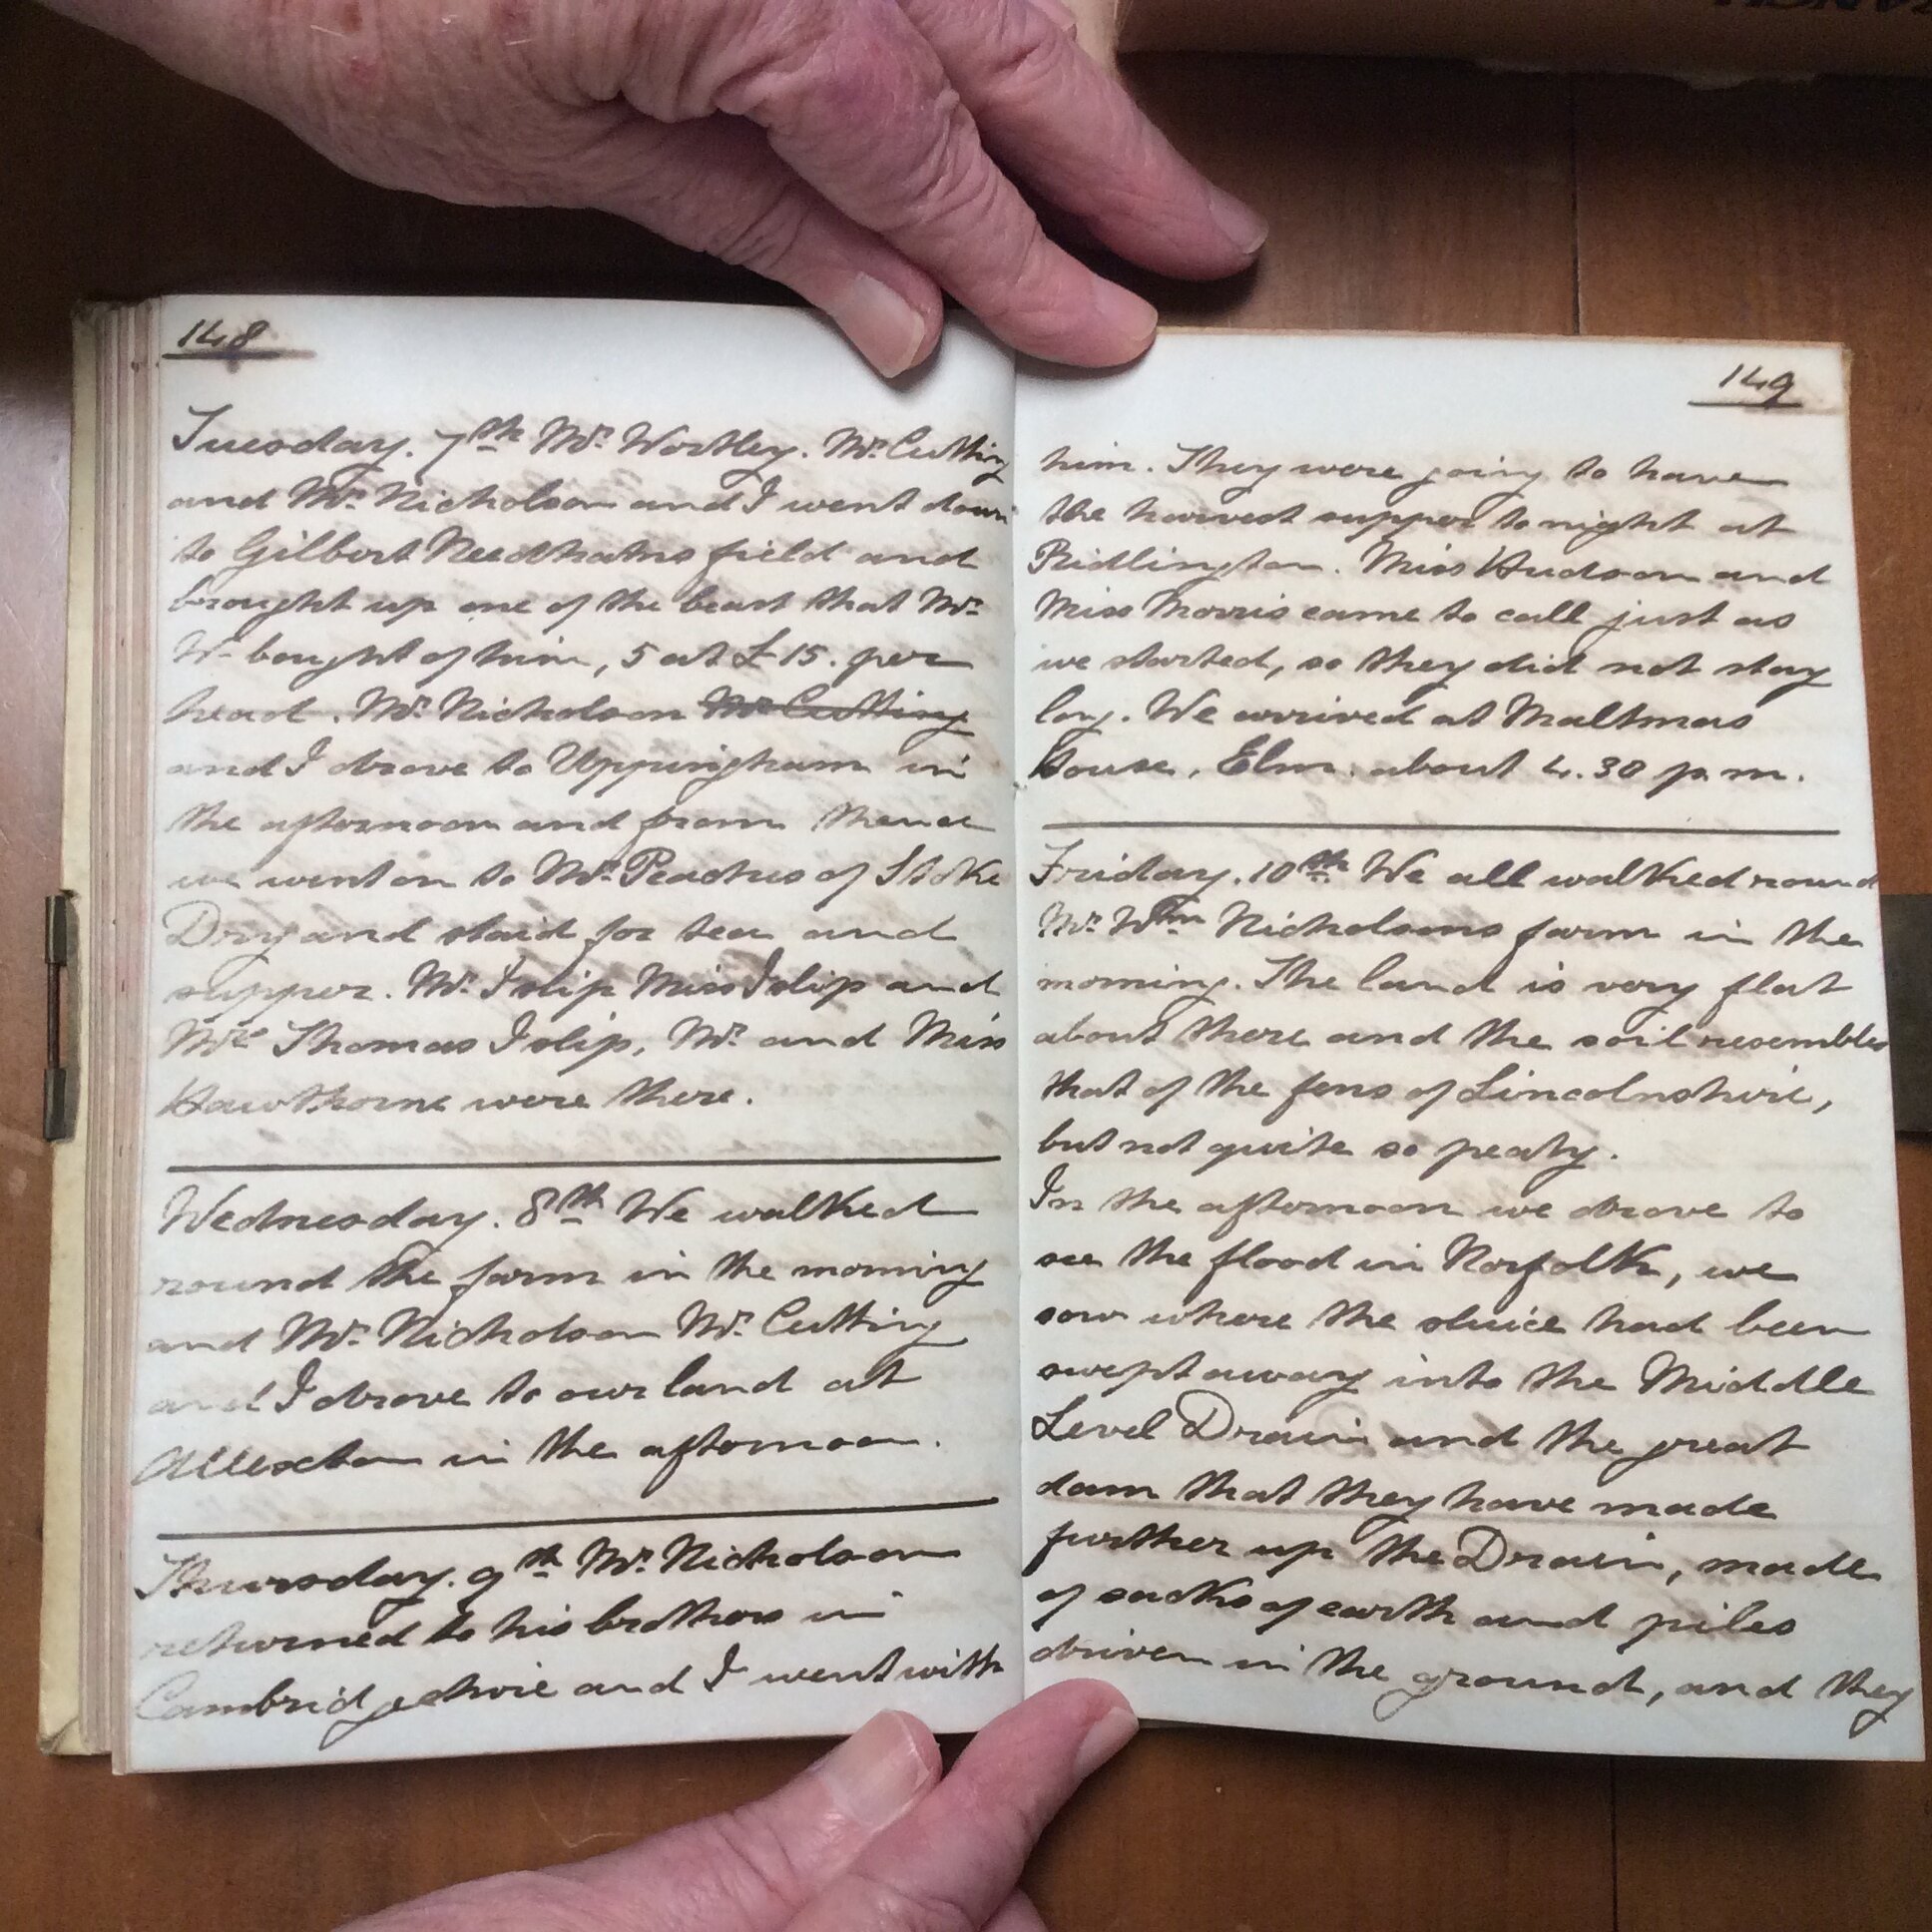 148
Tuesday. 7th Mr. Wortley. Mr. Cutting
and Mr. Nicholson and I went down
to Gilbert Needhams field and
brought up one of the beast that Mr.
W- bought of him, 5 at £15. per
head. Mr. Nicholson Mr Cutting
and I drove to Uppingham in
the afternoon and from thence
we went on to Mr. Peaches of Stoke
Dry and staid for tea and
supper. Mr. Islip Miss Islip and
Mrs Thomas Islip, Mr. and Miss
Hawthorne were there.
Wednesday. 8th We walked
round the farm in the morning
and Mr. Nicholson Mr. Cutting
and I drove to our land at
Allexton in the afternoon.
Thursday. 9th Mr. Nicholson
returned to his brothers in
Cambridgeshire and I went with
149
him. They were going to have
the harvest supper to night at
Ridlington. Miss Hudson and
Miss Morris came to call just as
we started, so they did not stay
long. We arrived at Maltmas
House, Elm. about 4.30 p.m.
Friday. 10th We all walked round
Mr. Wm Nicholsons farm in the
morning. The land is very flat
about there and the soil resembles
that of the fens of Lincolnshire,
but not quite so peaty.
In the afternoon we drove to
see the flood in Norfolk, we
saw where the sluice had been
swept away into the Middle
Level Drain and the great
dam that they have made
further up the Drain, made
of sacks of earth and piles
driven in the ground, and they